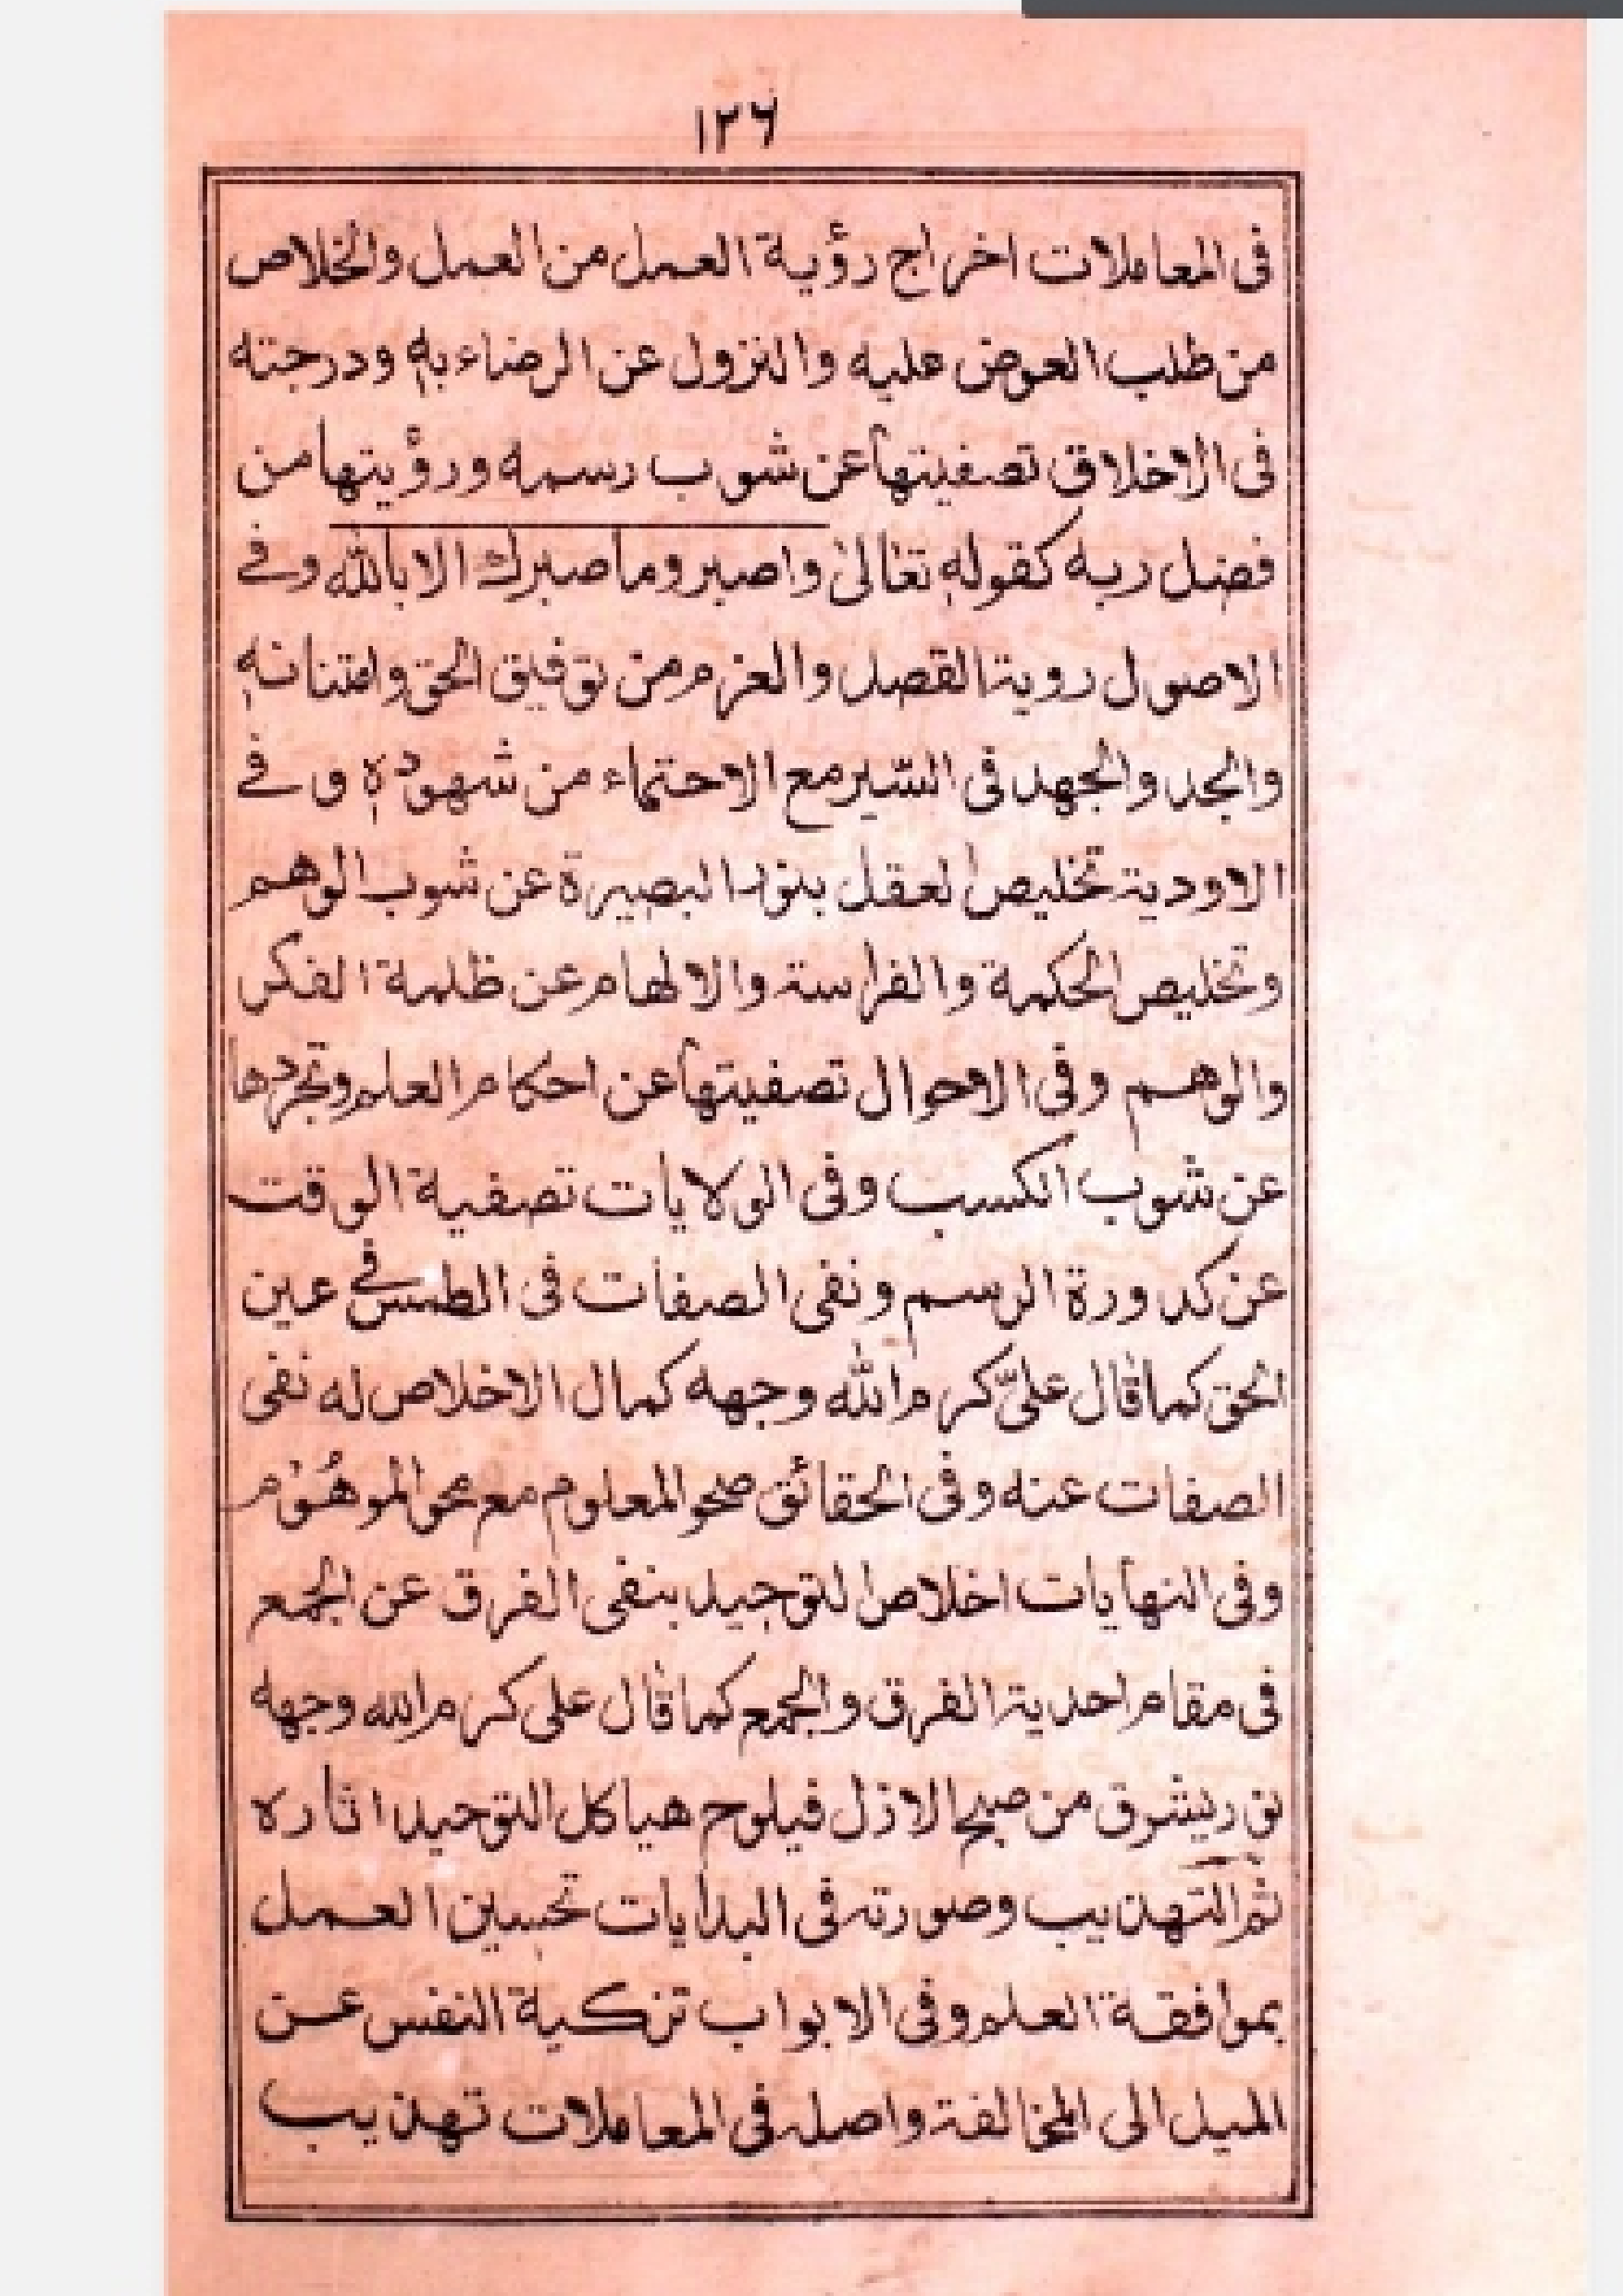 ١٢٦
فى المعاملات اخراج رؤية العمل من العمل والخلاص
من طلب العوض عليه والنزول عن الرضاء به ودرجته
فى الاخلاق تصفيتها عن شوب رسمه ورؤيتها من
فضل ربه كقوله تعالىٰ واصبر وما صبرك الا بالله وفے
الاصول روية القصد والعزم من توفيق الحق وامتنانه
والجد والجهد فى السّير مع الاحتماء من شهوده وفے
الاودية تخليص العقل بنور البصيرة عن شوب الوهم
وتخليص الحكمة والفراسة والالهام عن ظلمة الفكر
والوهم وفى الاحوال تصفيتها عن احكام العلم وتجردها
عن شوب الكسب وفى الولايات تصفية الوقت
عن كدورة الرسم ونفى الصفات فى الطمس فے عين
الحق كما قال علىّ كرم الله وجهه كمال الاخلاص له نفى
الصفات عنه وفى الحقائق صحو المعلوم مع محو الموهُوْم
وفى النهايات اخلاص التوحيد بنفى الفرق عن الجمع
فى مقام احدية الفرق والجمع كما قال على كرم الله وجهه
نور يشرق من صبح الازل فيلوح هياكل التوحيد اثاره
ثم التهذيب وصورته فى البدايات تحسين العمل
بموافقة العلم وفى الابواب تزكية النفس عن
الميل الى المخالفة واصله فى المعاملات تهذيب